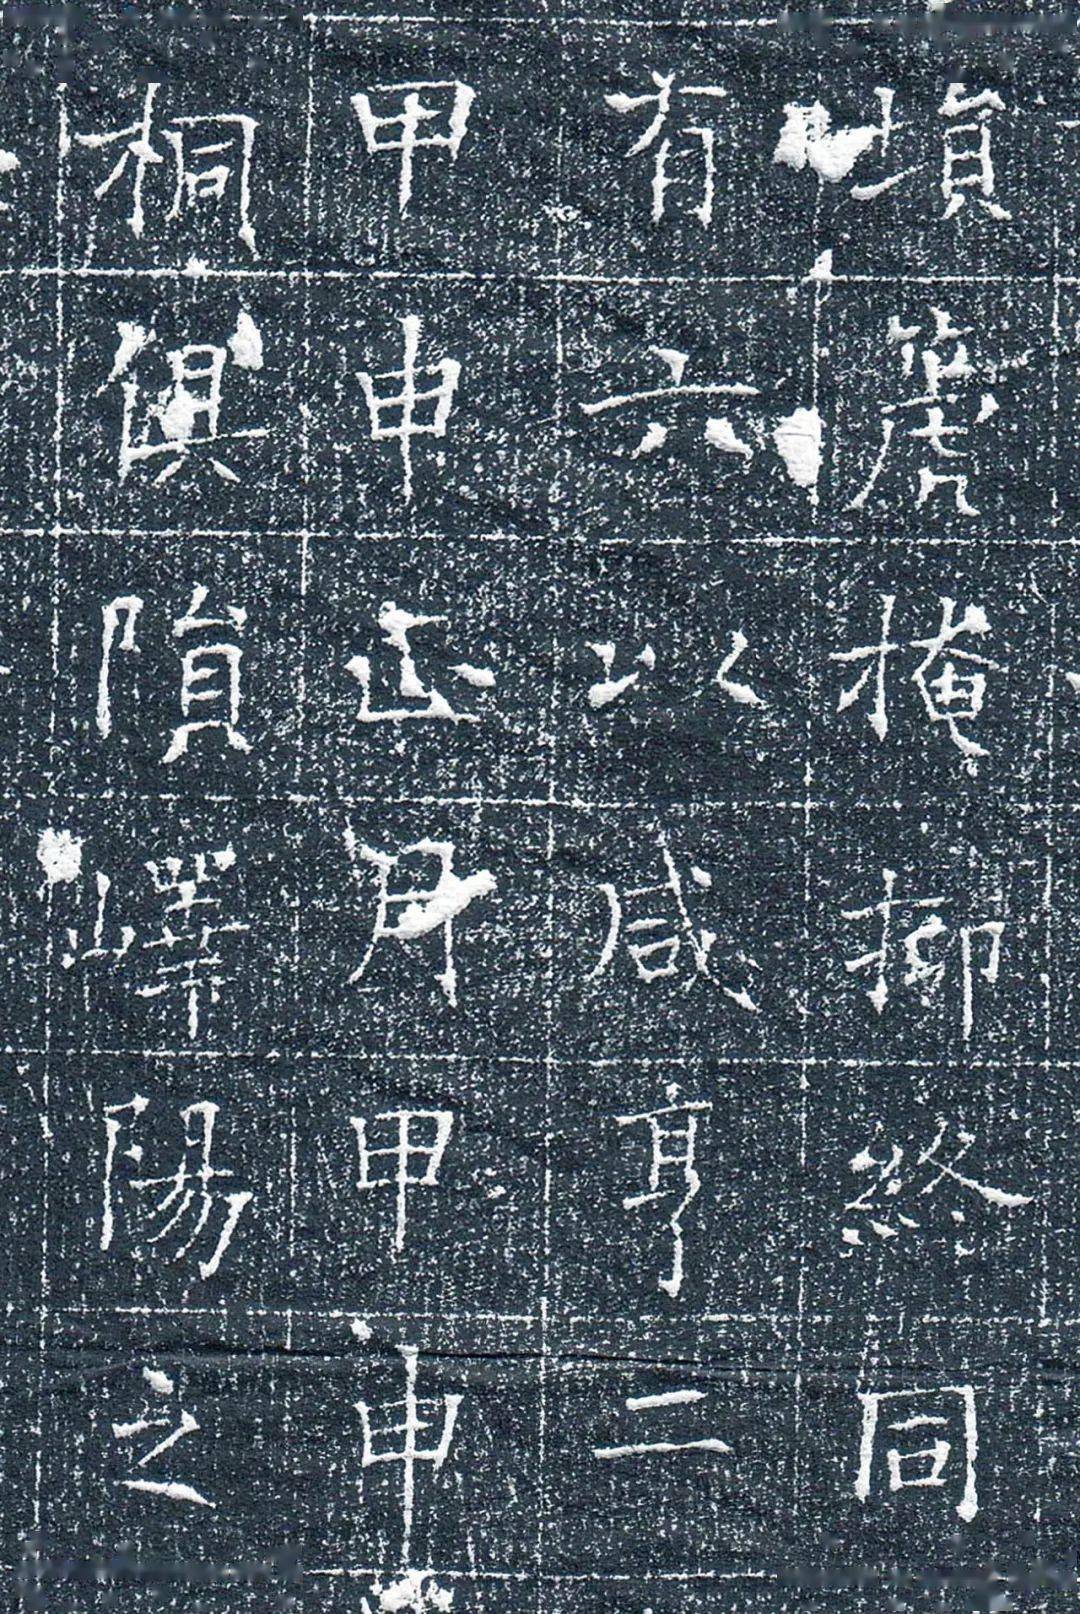 塤篪掩抑終同
有六以咸亨二
甲申正月甲申
桐俱隕嶧陽之